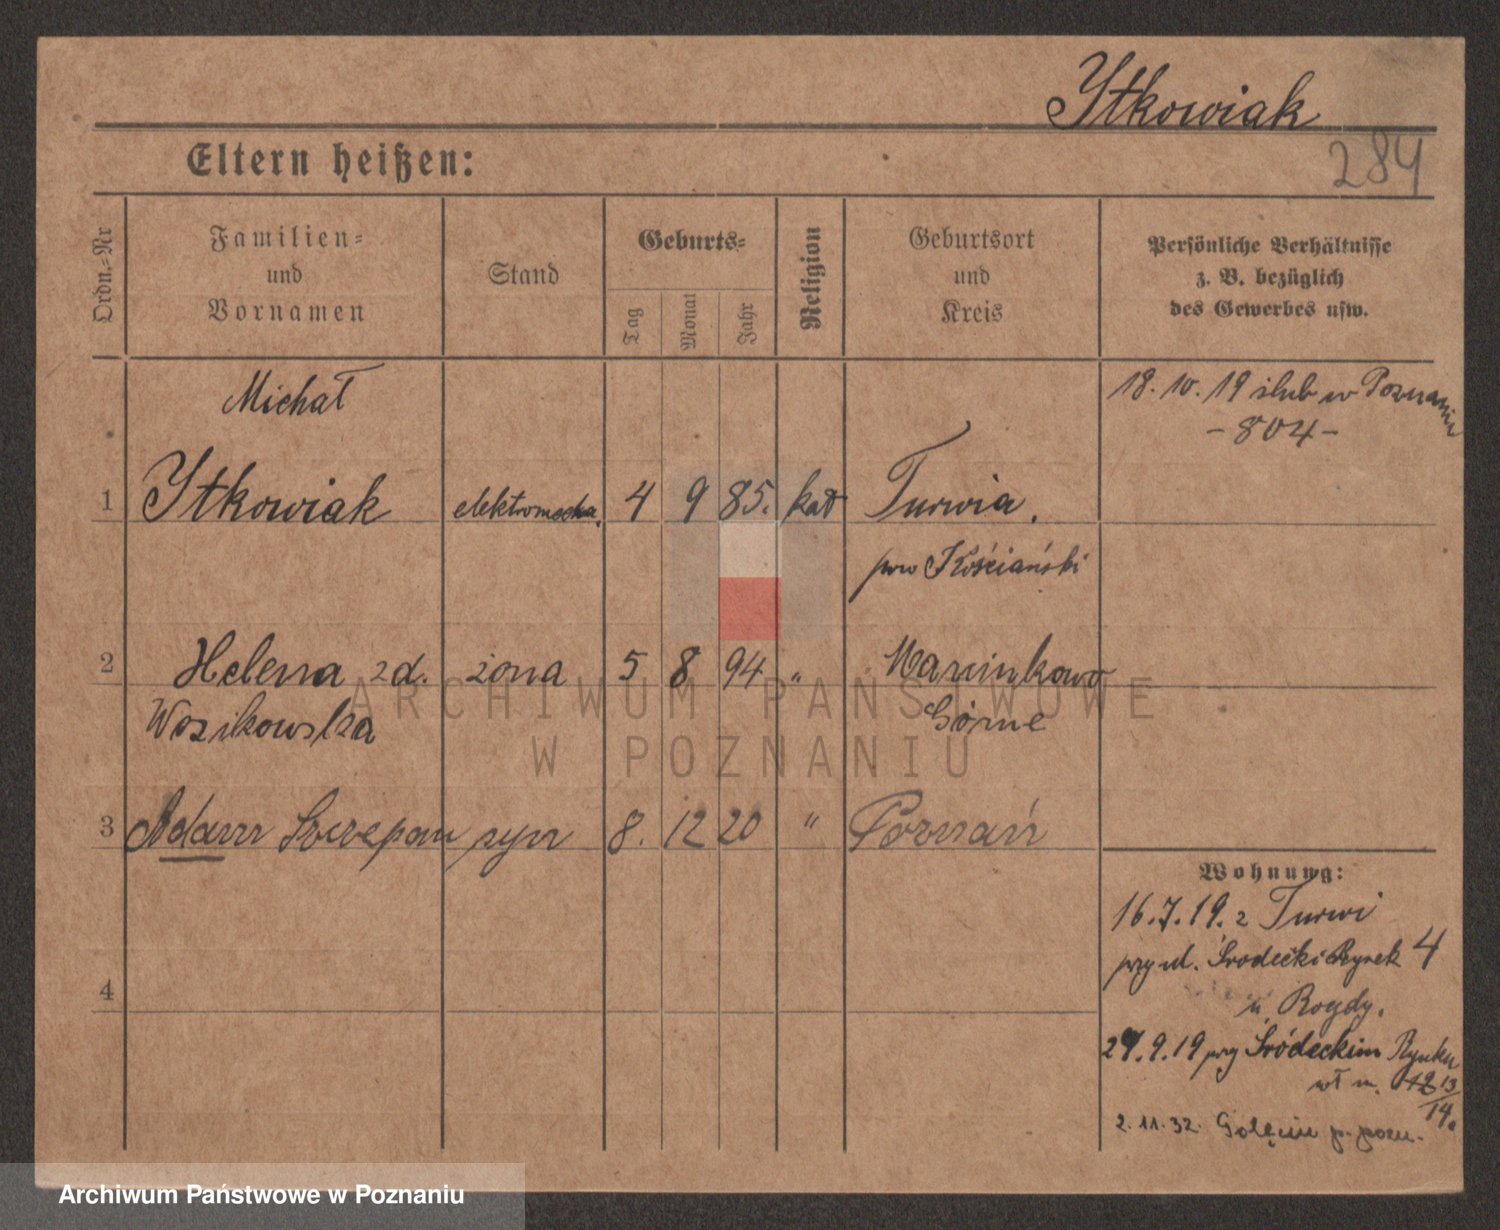 Ytkowiak
284
Eltern heißen:
Ordn.=Nr
Familien=
und
Vornamen
Stand
Geburts=
Tag
Monat
Jahr
Religion
Geburtsort
und
Kreis
Persönliche Verhältnisse
z. B. bezüglich
des Gewerbes usw.
Michał
18. 10. 19 ślub w Poznaniu
- 804 -
1 Ytkowiak elektromecha. 4 9 85. kat Turwia.
pow Kościański
2 Helena zd. żona 5 8 94 " Marcinkowo
Wozikowska Górne
3 Adam Szczepan syn 8. 12 20 " Poznań
Wohnung:
16.7.19. z Turwi
przy ul. Środecki Rynek 4
u
4
27.9.19 przy Śródeckim Rynku
wł m. 12 13
14.
2.11.32. Golęcin p. pozn.
ARCHIWUM PAŃSTWOWE
W POZNANIU
Archiwum Państwowe w Poznaniu